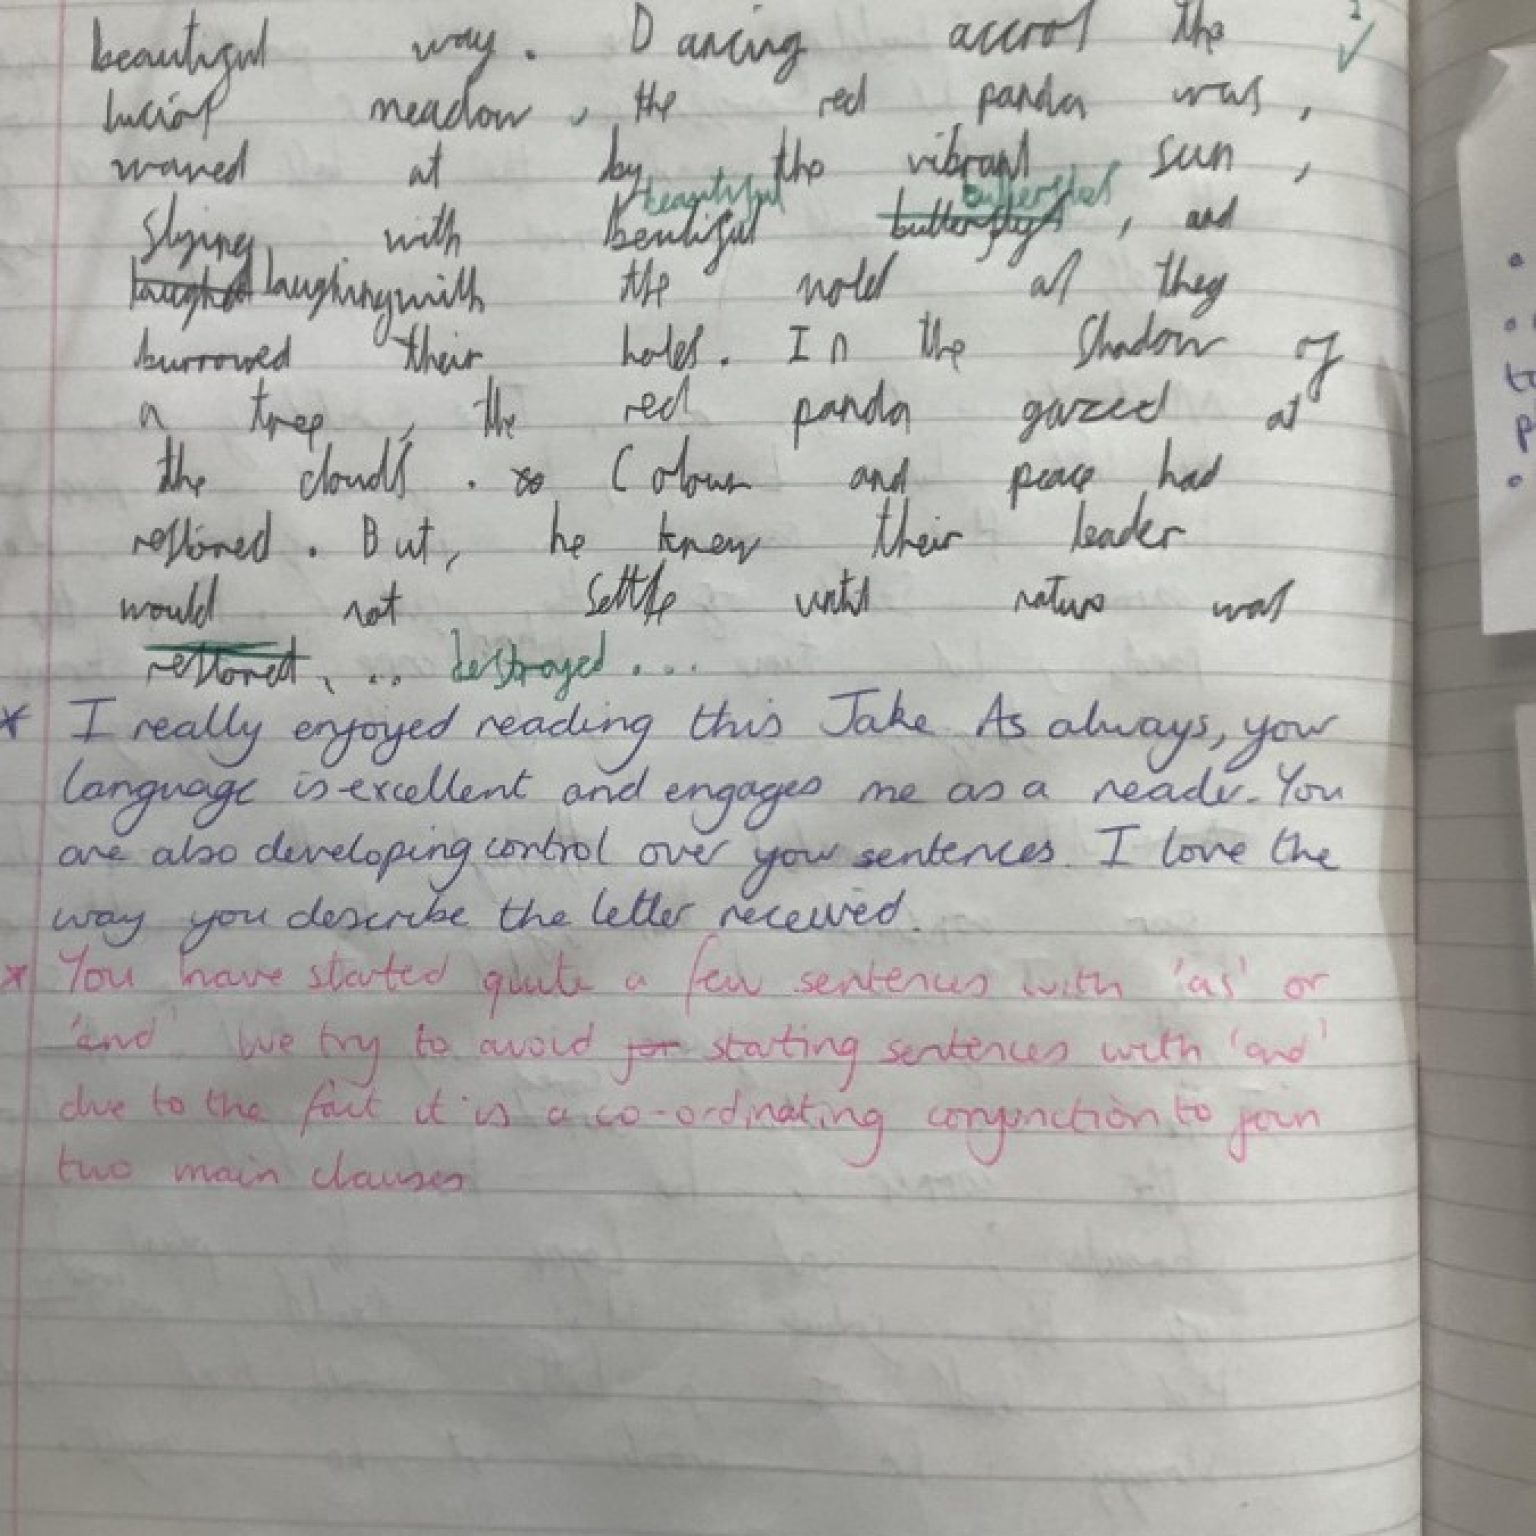 beautiful way. Dancing accros the
lucios meadow, the red panda was,
waved at by the vibrant sun,
beautiful butterflies
flying, with beutiful butterflys, and
laughed laughing with the mold as they
burrowed their holes. In the shadow of
a tree, the red panda gazed at
the clouds. Colour and peace had
restored. But, he knew their leader
would not settle until nature was
restored, ... destroyed...
* I really enjoyed reading this Jake. As always, your
language is excellent and engages me as a reader. You
are also developing control over your sentences. I love the
way you describe the letter received.
* You have started quite a few sentences with 'as' or
'and'. We try to avoid for starting sentences with 'and'
due to the fact it is a co-ordinating conjunction to join
two main clauses